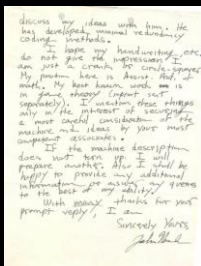 discuss my ideas with him. He
has developed minimal redundancy
coding methods.
I hope my handwriting, etc.
do not give the impression I
am just a crank or circle-squarer.
My position here is Assist. Prof. of
math. My best known work is
in game theory (reprint sent
separately). I mention these things
only in the interest of securing
a most careful consideration of the
machine and ideas by your most
competent associates.
If the machine description
does not turn up I will
prepare another. Also I shall be
happy to provide any additional
information or answer any queries
to the best of my ability.
With many thanks for your
prompt reply, I am
Sincerely Yours,
John Nash